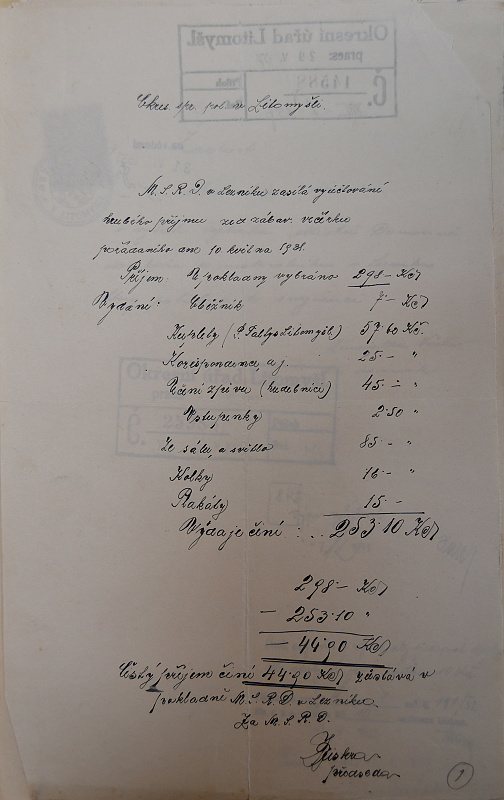 Okres. spr. pol. v Litomyšli.
M. S. R. D. v Lezníku zasílá vyúčtování
hrubého příjmu zed zábav. večírku
pořádaného dne 10 květina 1931.
Příjem: U pokladny vybráno 298·– Kč
Vydání: Oběžník 7·– Kč
Kuplety (P. Fallys Litomyšl.) 57·60 Kč.
Korespondence, a j. 25·– "
Účiní zpívu (hudebníci) 45·– "
Vstupenky 2·50 "
Ze sálu, a světlo 85·– "
Kolky 16·– "
Plakáty 15·–
Výdaje činí: .. 253·10 Kč
298·– Kč
– 253·10 "
– 44·90 Kč
Čistý příjem činí 44·90 Kč zůstává v
pokladně M. S. R. D. v Lezníku.
Za M. S. R. D.
předseda
1